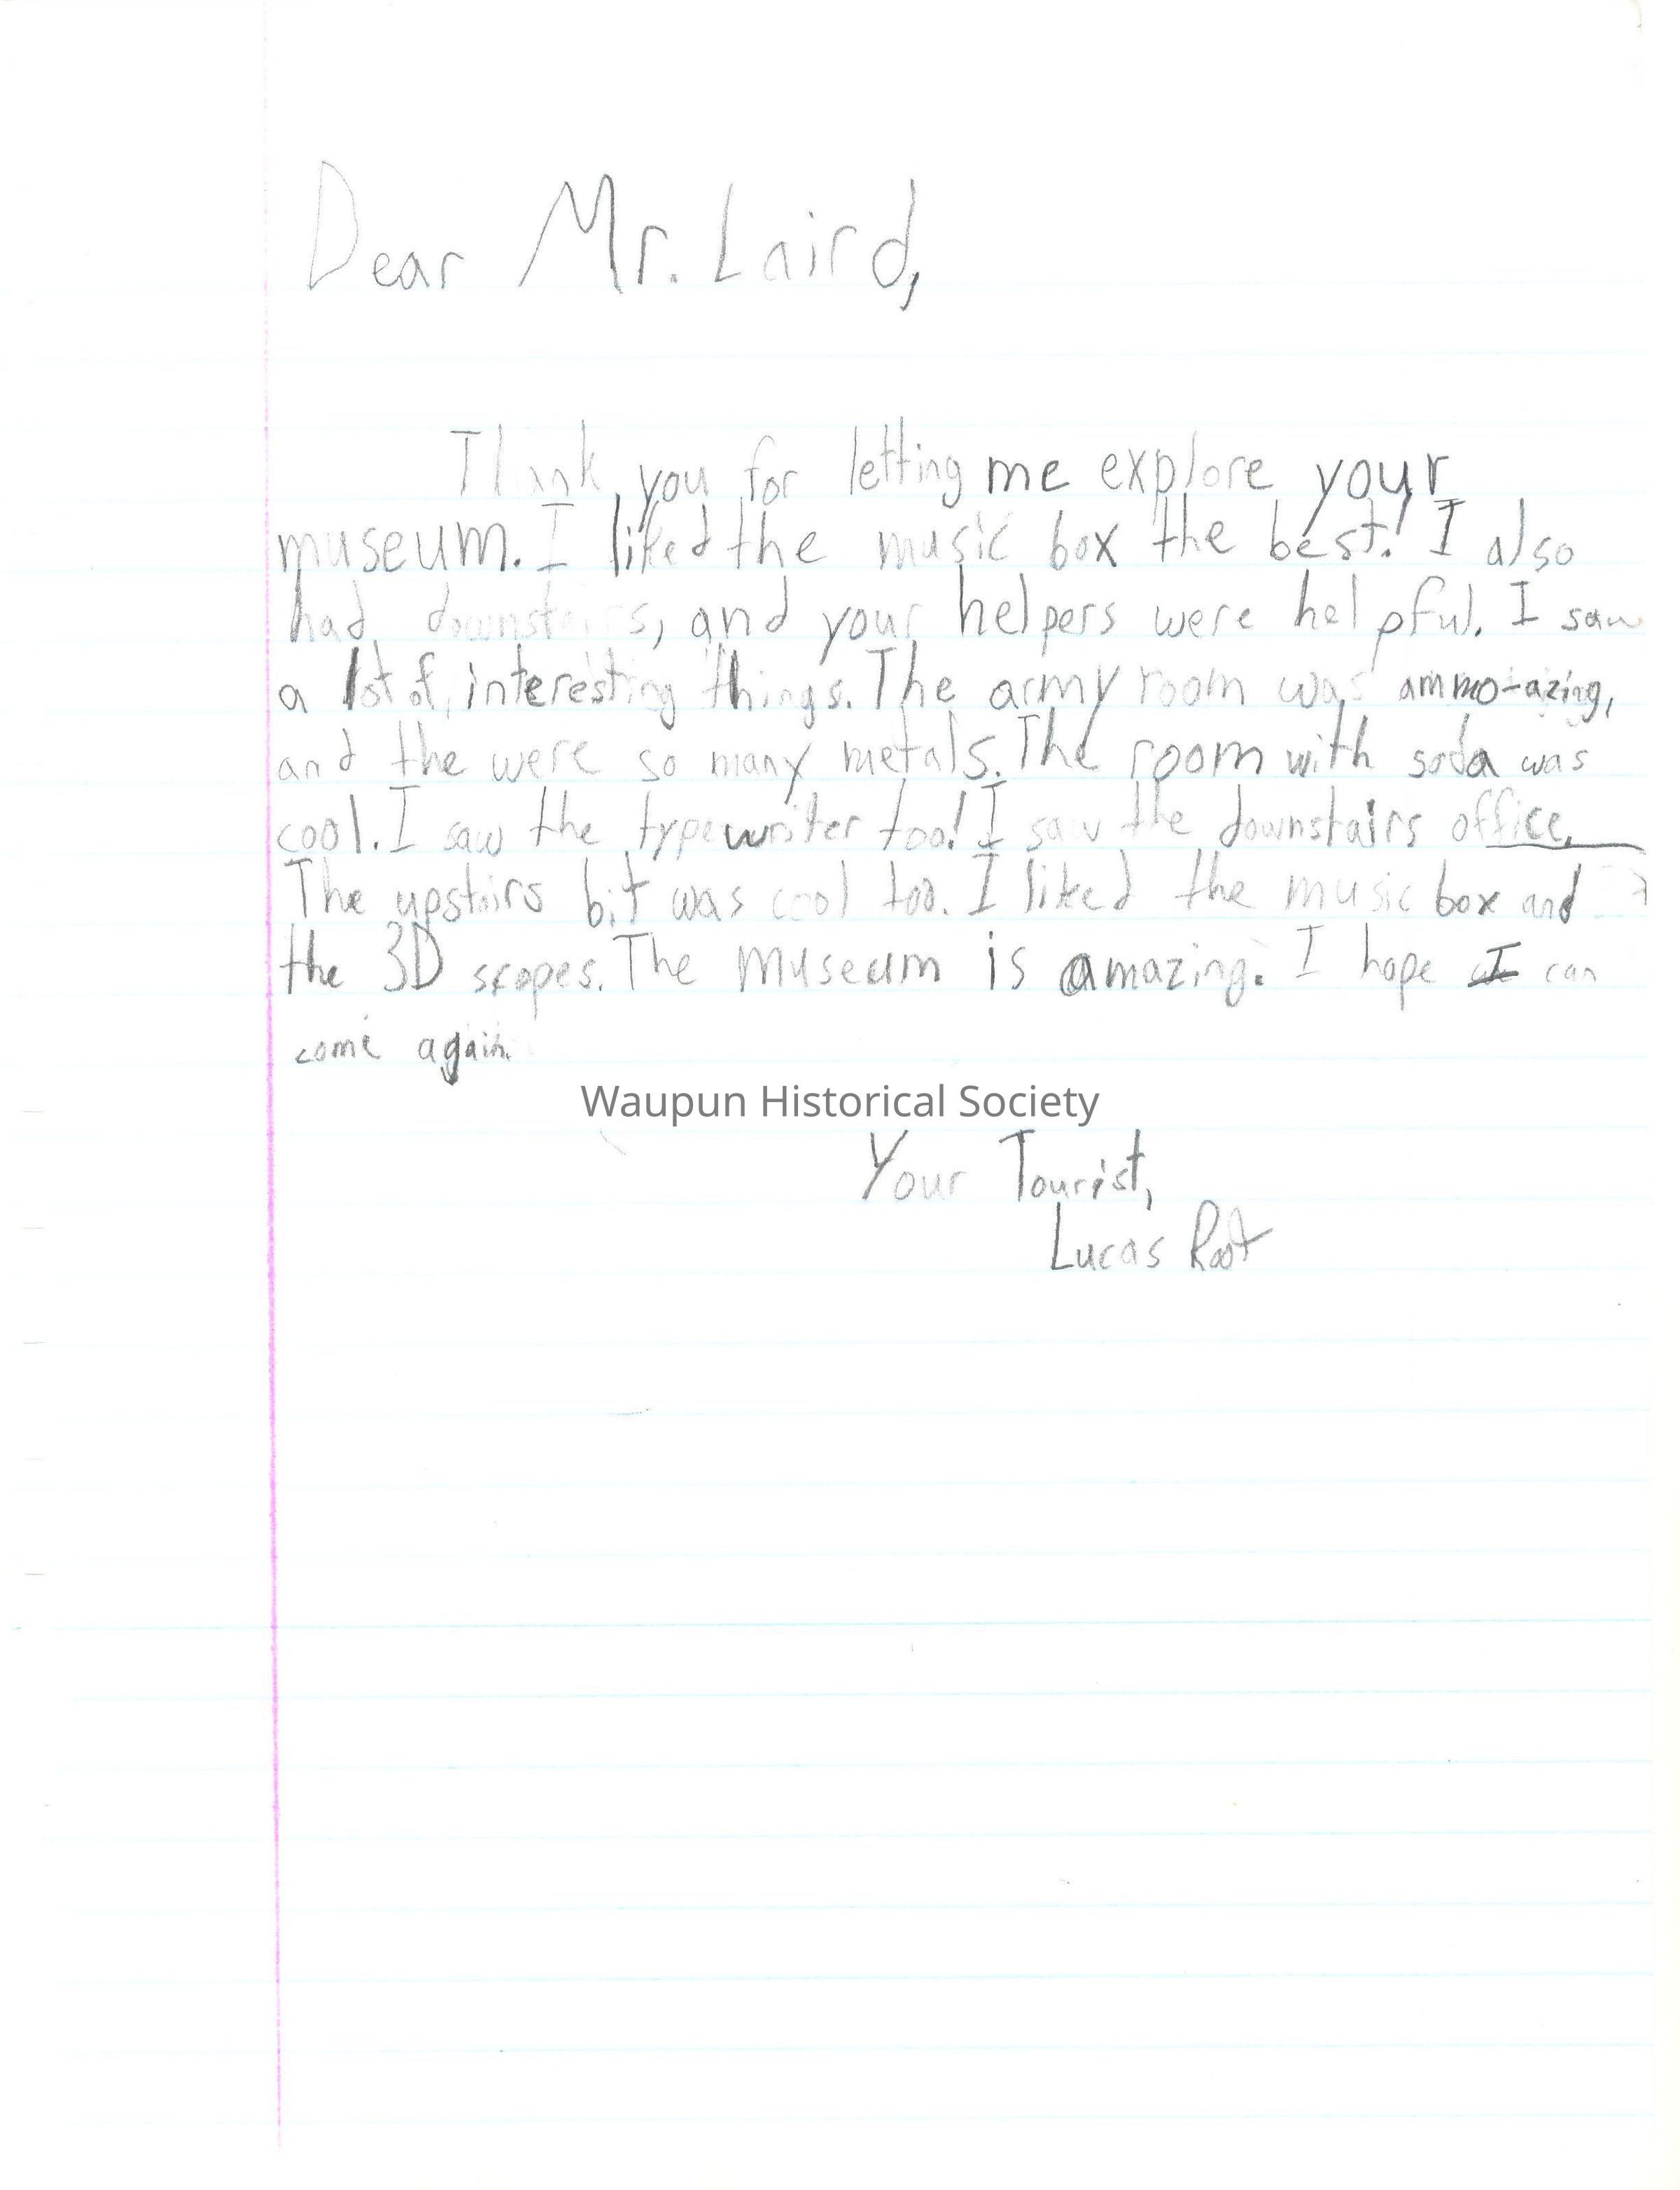 Dear Mr. Laird,
Thank you for letting me explore your
museum. I liked the music box the best! I also
had downstairs, and your helpers were helpful. I saw
a lot of interesting things. The army room was ammo-azing,
and the were so many metals. The room with soda was
cool. I saw the typewriter too! I saw the downstairs office.
The upstairs bit was cool too. I liked the music box and
the 3D scopes. The museum is amazing. I hope I can
come again.
Waupun Historical Society
Your Tourist,
Lucas Root